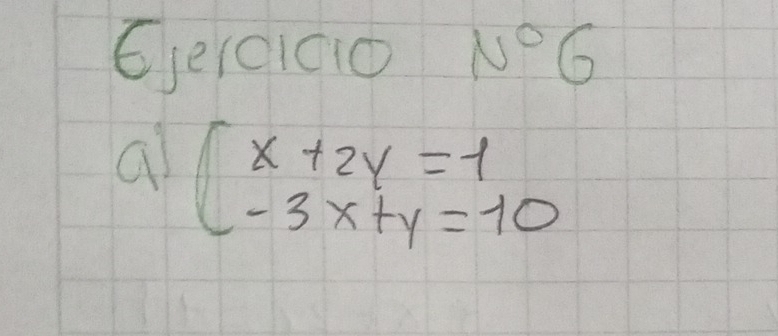 Ejercicio N° 6
a) { x + 2y = 1
- 3x + y = 10